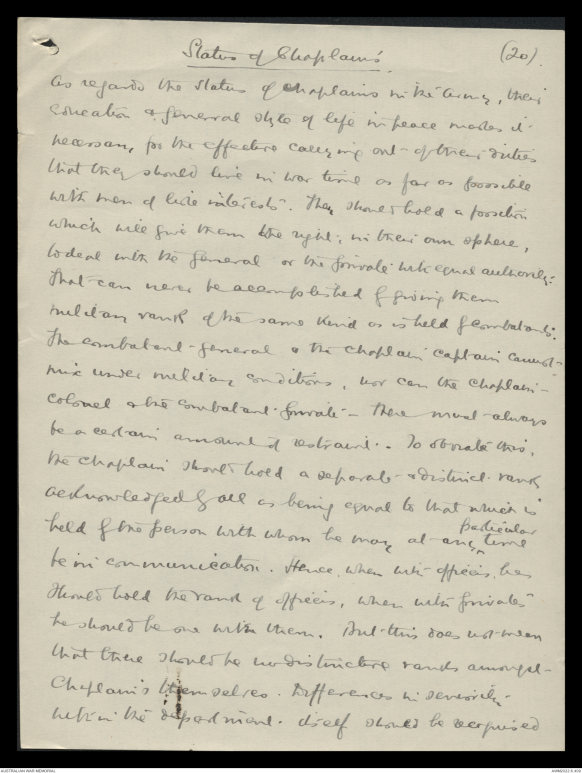 Status of Chaplains
(20).
As regards the status of chaplains in the Army, their
education & general style of life in peace makes it
necessary for the effective carrying out of their duties
that they should live in war time as far as possible
with men of like interests. They should hold a position
which will give them the right, in their own sphere,
to deal with the General or the private with equal authority.
That can never be accomplished by giving them
military rank of the same kind as is held by combatants.
The combatant-general & the chaplain captain cannot
mix under military conditions, nor can the chaplain-
colonel & the combatant private – there must always
be a certain amount of restraint. To obviate this,
the chaplain should hold a separate & distinct rank
acknowledged by all as being equal to that which is
held by the person with whom he may at any particular time
be in communication. Hence, when with officers, he
should hold the rank of officers, when with privates
he should be one with them. But this does not mean
that there should be no distinctive ranks amongst
Chaplains themselves. Differences in seniority
within the department itself should be recognised
AUSTRALIAN WAR MEMORIAL